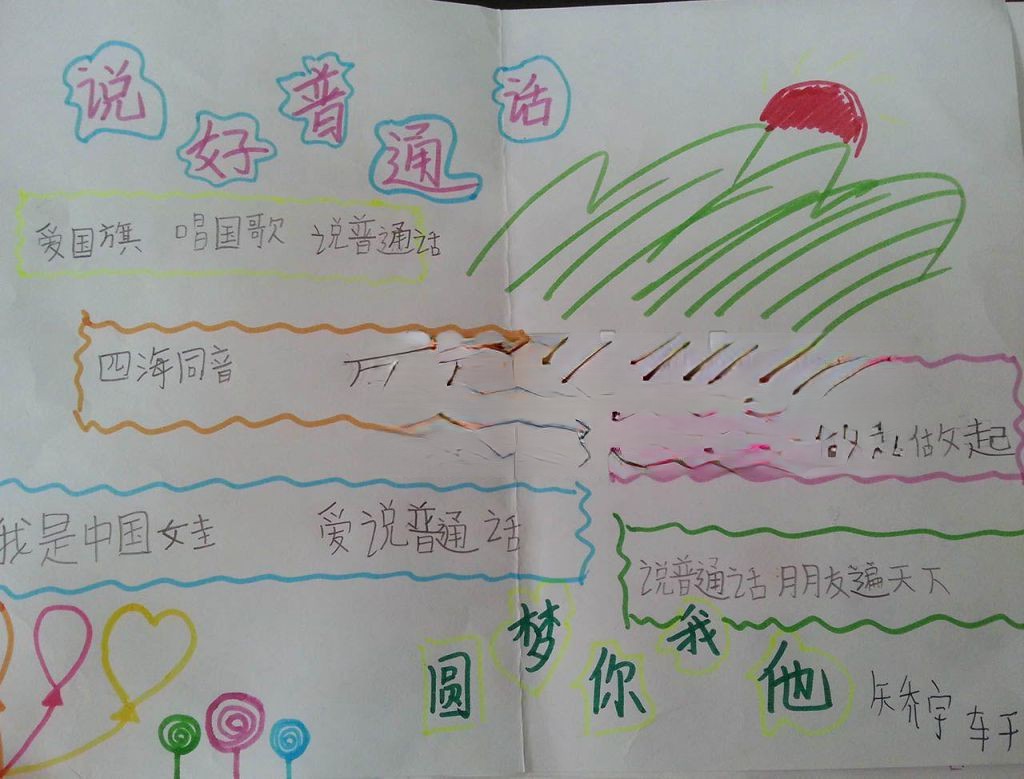 说好普通话
爱国旗 唱国歌 说普通话
四海同音
做起
我是中国女圭 爱说普通话
说普通话 朋友遍天下
圆梦你我他